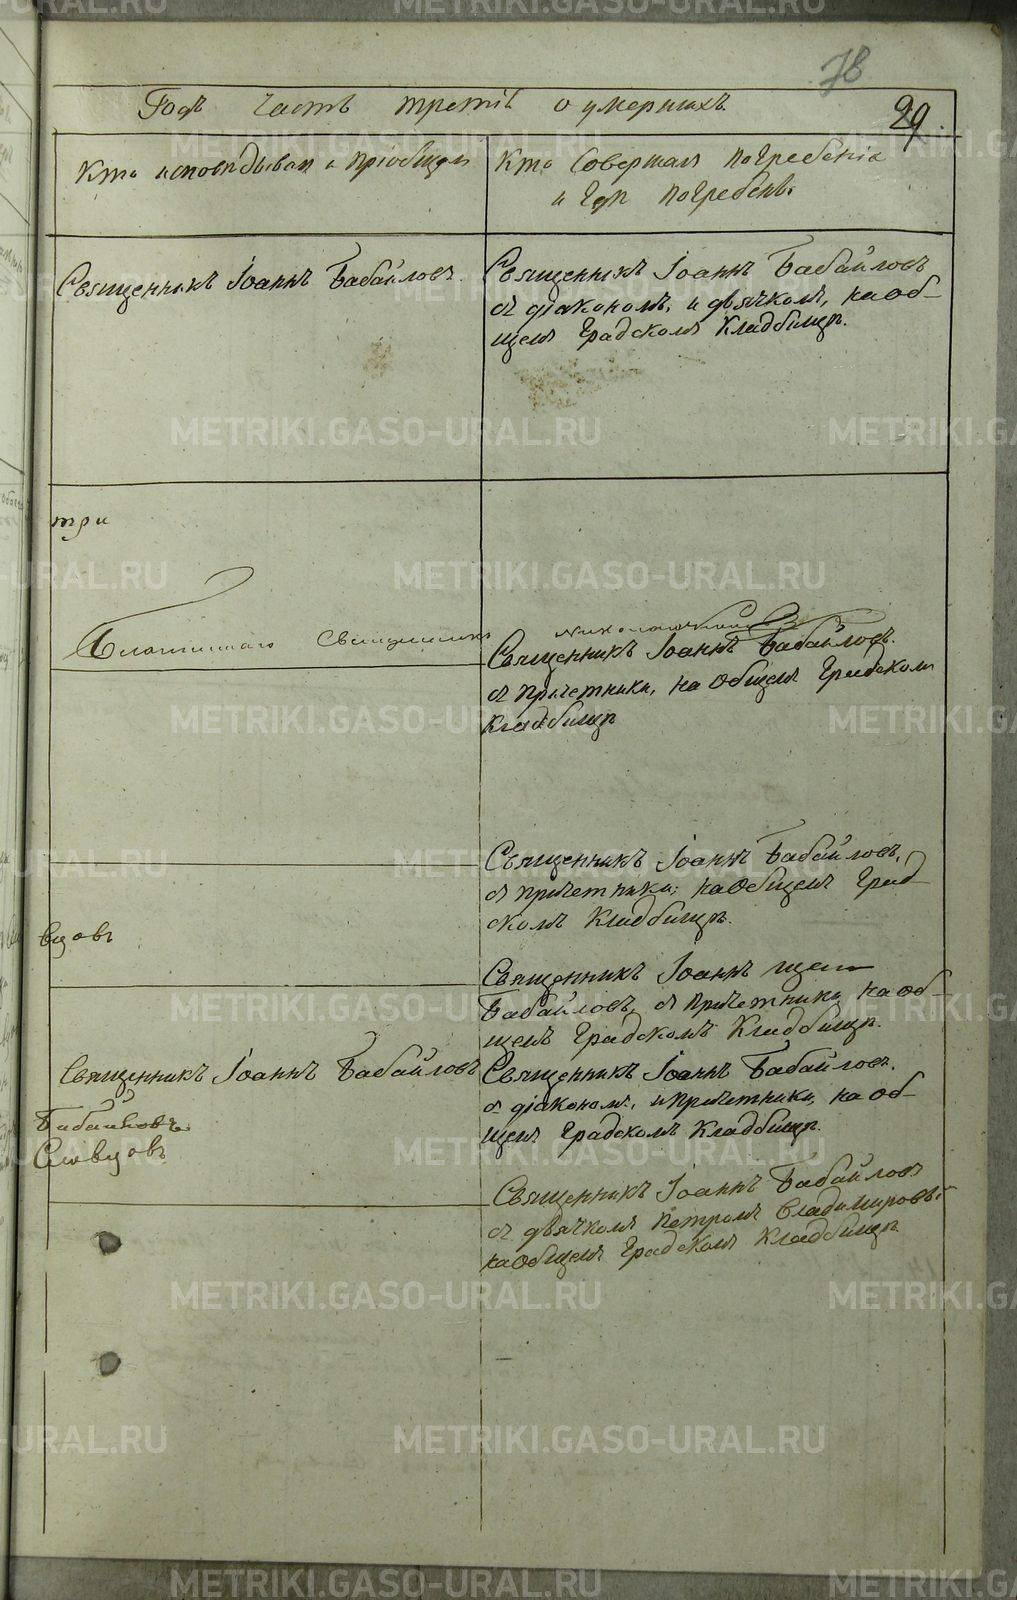 78
Годъ часть третiя о умершихъ
29.
Кто исповѣдывал и прiобщал
Кто Совершал погребенiе
и гдѣ погребенъ.
Священникъ Iоаннъ Бабайловъ.
Священникъ Iоаннъ Бабайловъ
съ дiакономъ, и дьячкомъ, на об-
щемъ Градскомъ Кладбищѣ.
три
Священника
Священникъ Iоаннъ Бабайловъ.
съ причетники, на общемъ Градском
Кладбищѣ
Священникъ Iоаннъ Бабайловъ,
съ причетники; на общемъ Град-
скомъ Кладбищѣ.
вцовъ
Священникъ Iоаннъ
Бабайловъ, съ причетники на об-
щемъ Градскомъ Кладбищѣ.
Священникъ Iоаннъ Бабайловъ
Священникъ Iоаннъ Бабайловъ.
съ дiакономъ, и причетники, на об-
щемъ Градскомъ Кладбищѣ.
Словцовъ
Священникъ Iоаннъ Бабайловъ
съ дьячкомъ Петромъ
на общемъ Градскомъ Кладбищѣ.
METRIKI.GASO-URAL.RU